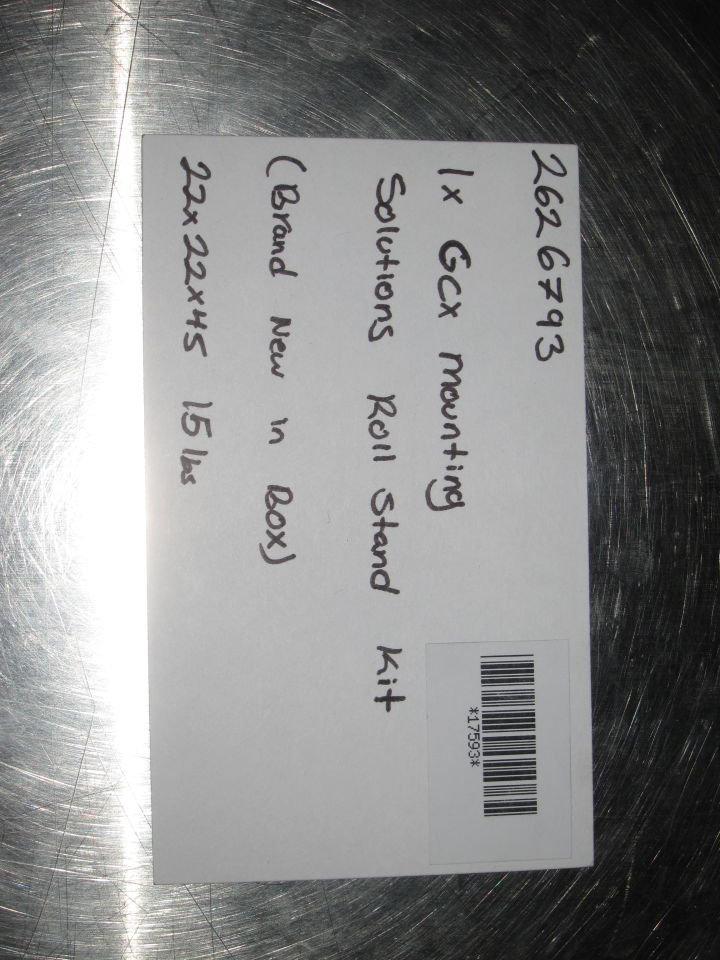 2626793
1x GCX mounting
Solutions Roll Stand Kit
(Brand New in Box)
22x22x45 15 lbs
*17593*